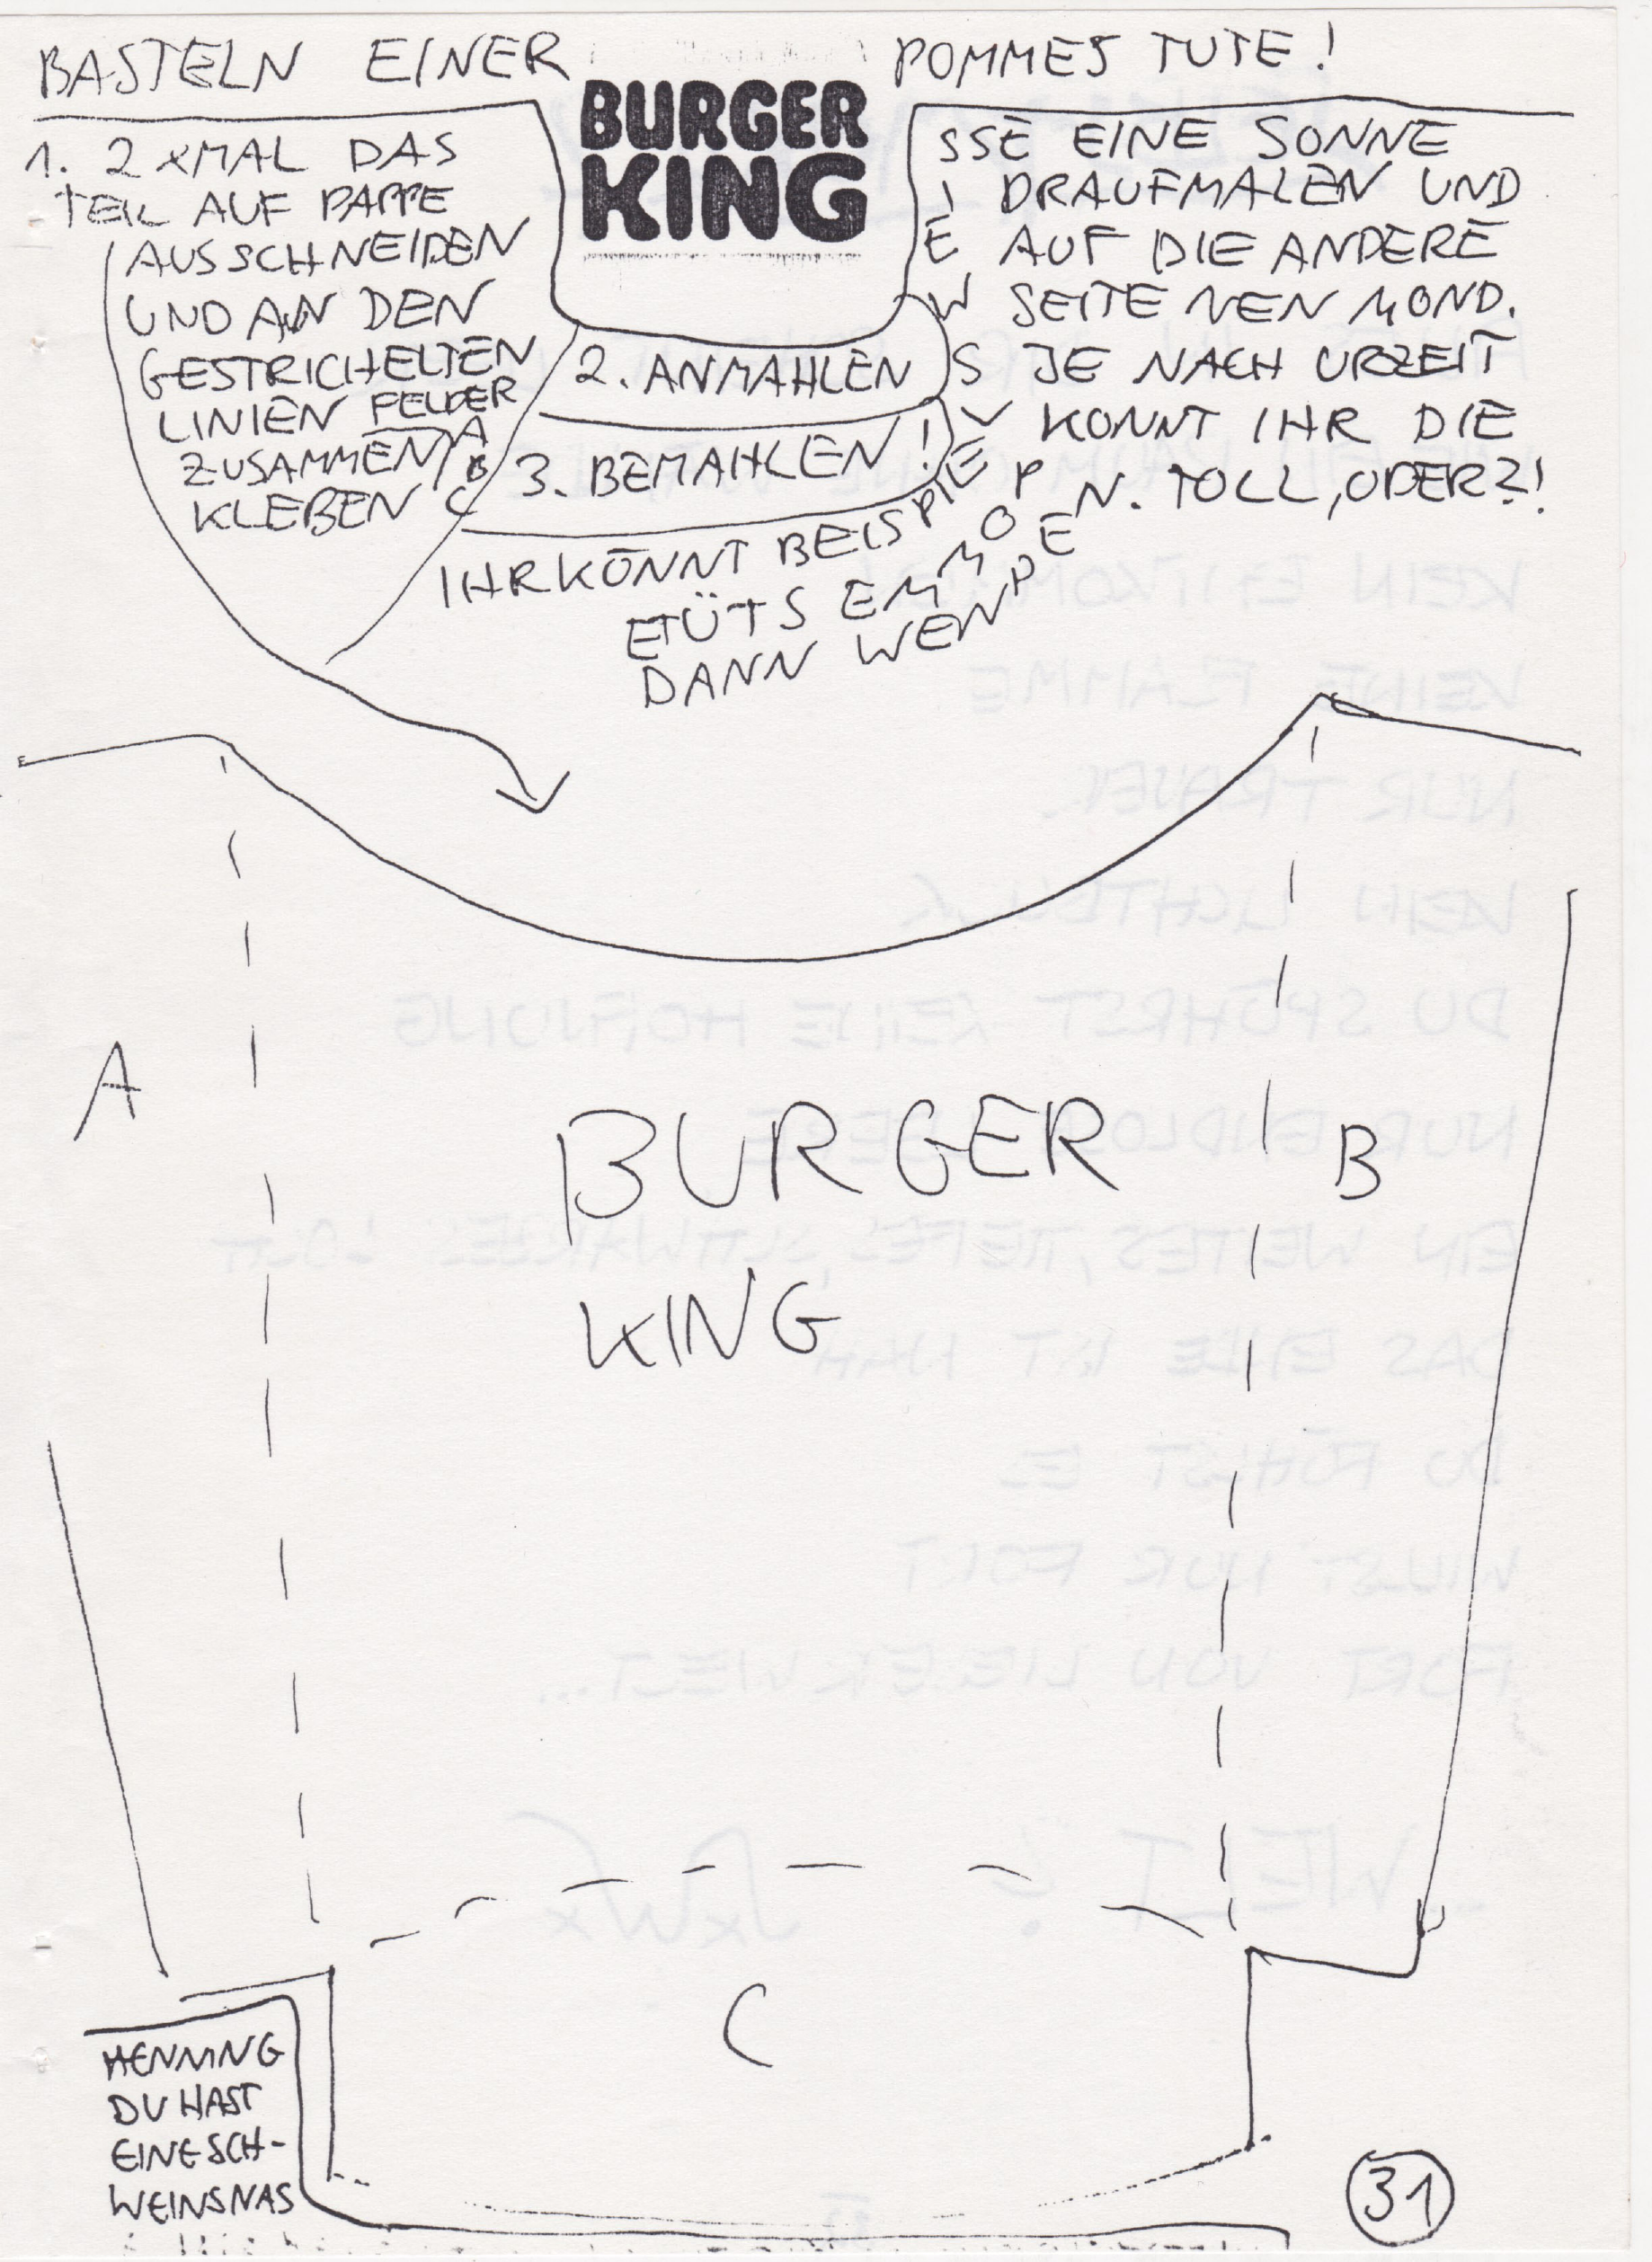 BASTELN EINER POMMES TUTE!
BURGER
KING
1. 2 xMAL DAS
TEIL AUF PAPPE
AUSSCHNEIDEN
UND AN DEN
GESTRICHELTEN
LINIEN FELDER
ZUSAMMEN A
B
KLEBEN C
2. ANMAHLEN
3. BEMAHLEN!
IHR KÖNNT BEISPIELSWEISSE EINE SONNE
DRAUFMALEN UND
AUF DIE ANDERE
SEITE NEN MOND.
JE NACH URZEIT
KONNT IHR DIE
ETÜTS EMMOP
DANN WENDEN. TOLL, ODER?!
A
BURGER
KING
B
C
HENNING
DU HAST
EINE SCH-
WEINSNAS
31